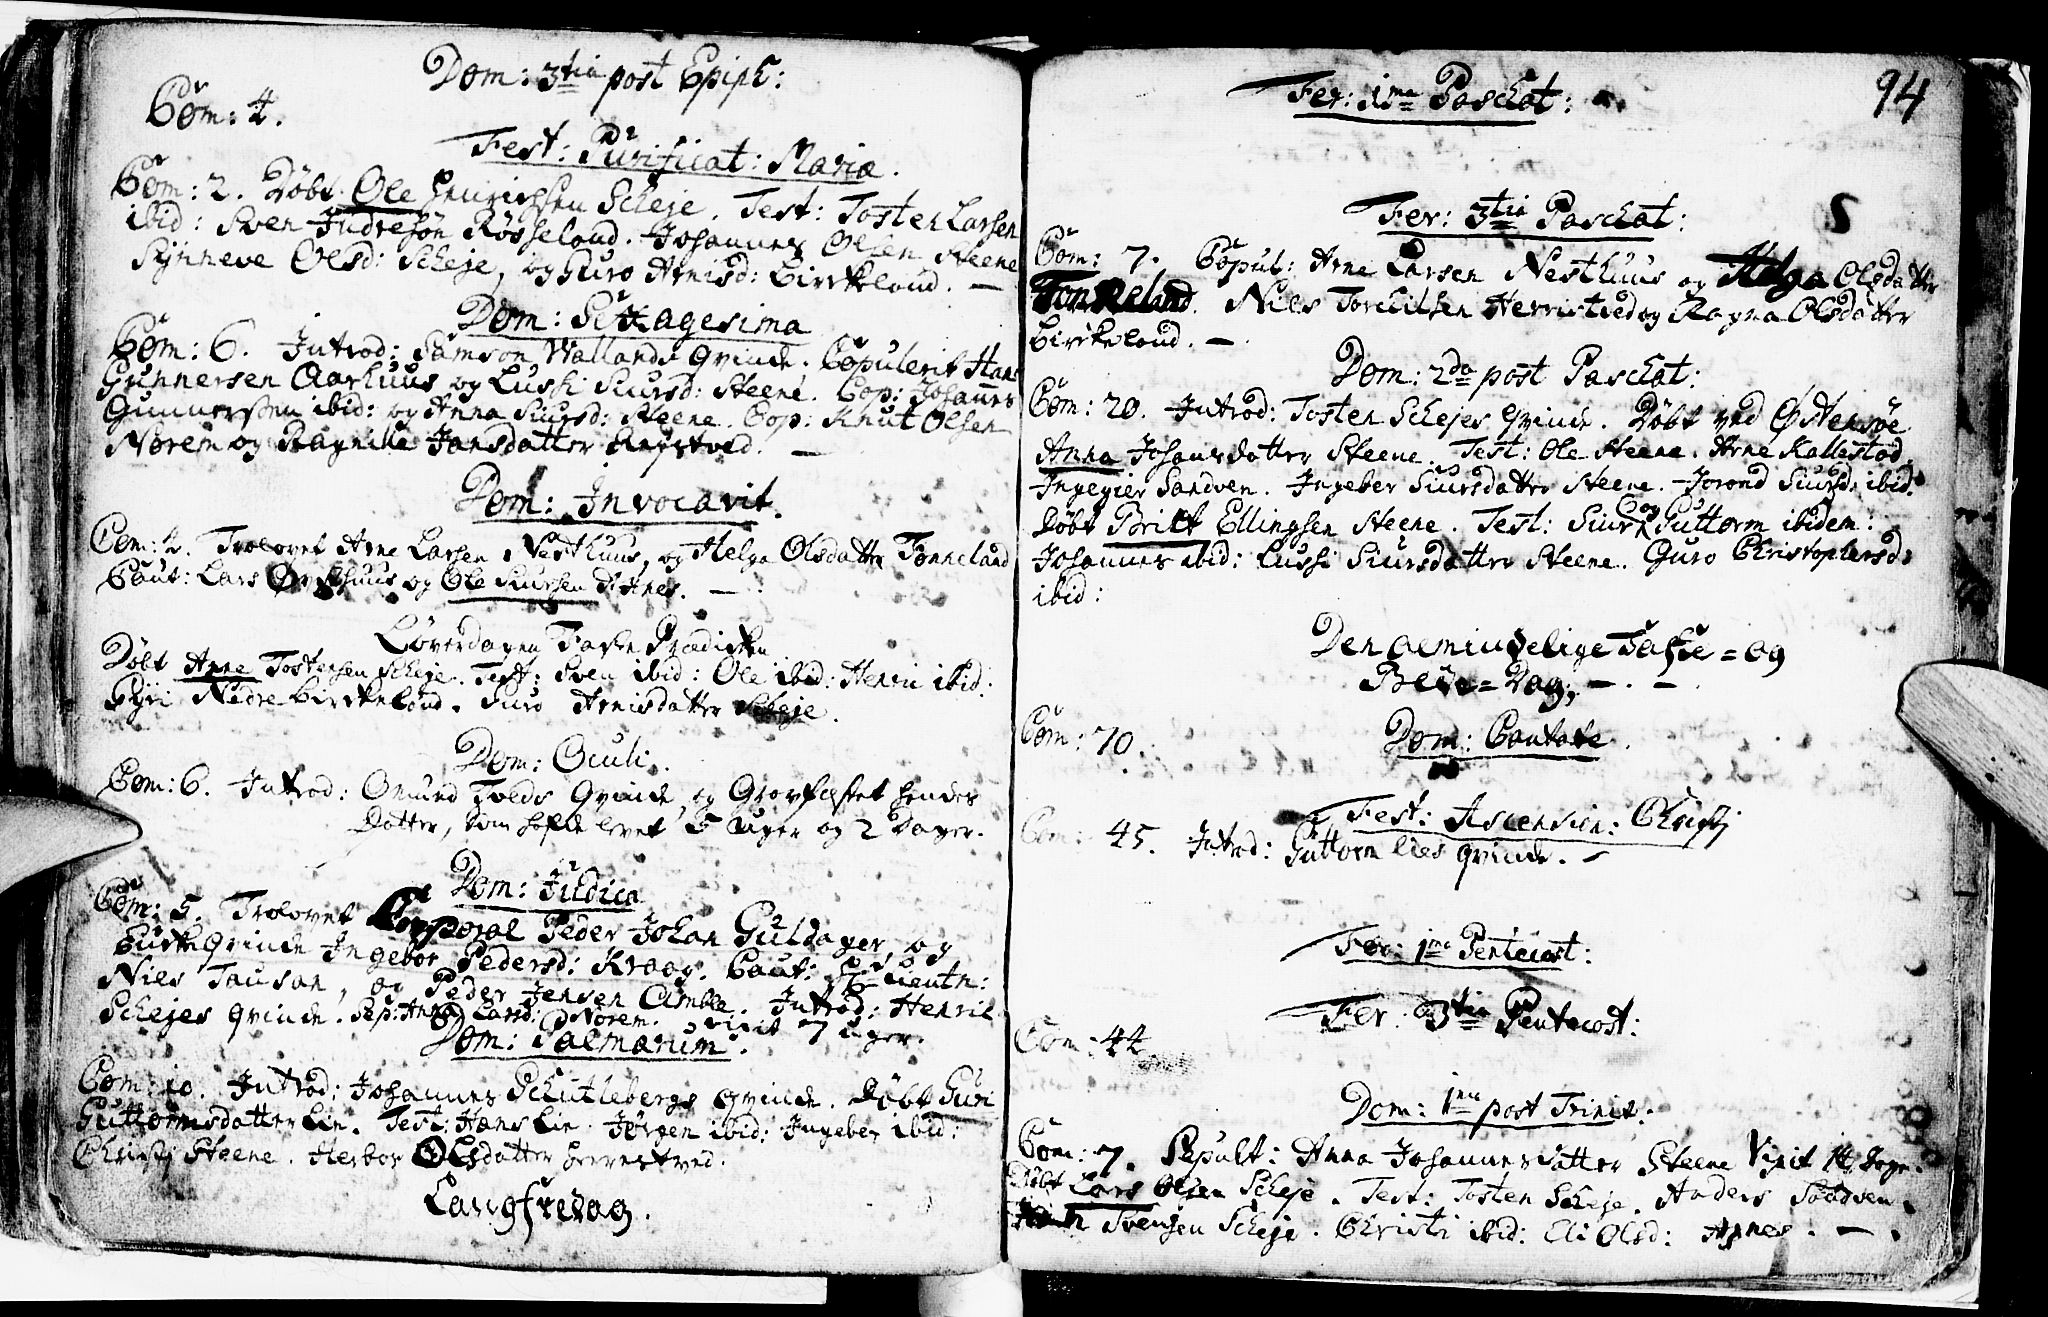 Dom: 3tia post Epiph:
Com: 4.
Fest: Purificat: Mariæ.
Com: 2. Døbt. Ole Henrichsen Scheje. Test: Tosten Larsen
ibid: Sven Andresøn Røsseland. Johannes Olsen Steene
Synneve Olsd: Scheje, og Guro Arnisd: Birkeland. —
Dom: Sexagesima
Com: 6. Introd: Samson Wallands Qvinde. Copulerit Hans
Gunnersen Aarhuus og Lussi Siursd: Steene. Cop: Johannes
Gunnersen ibid: og Anna Siursd: Steene. Cop: Knut Olsen
Norem og Ragnilie Jansdatter
Dom: Invocavit.
Com: 2. Trolovet Arne Larsen Nesthuus, og Helga Olsdatter Tonneland
Caut: Lars Østhuus og Ole Siursen Axnes. —
Løverdagen Faste Prædicken
Døbt Anne Tostensen Scheje. Test: Sven ibid: Ole ibid: Henric ibid:
Gyri Nedre Birkeland. Guro Arnisdatter Scheje.
Dom: Oculi.
Com: 6. Introd: Omund Tveds Qvinde, og Gravfæstet hendes
Datter, som hafde levet 5 Uger og 2 Dager.
Dom: Judica
Com: 5. Trolovet Corporal Peder Johan Guldager, og
Qvinde Ingebor Pedersd: Kraag. Caut: Lieutn:
Niels Tausan, og Peder Jensen Amble. Introd: Henric
Schejes Qvinde. Sep: Anna Larsd: Norem. vixit 7 uger.
Dom: Palmarum.
Com: 10. Introd: Johannes Schutlebergs Qvinde. Døbt Guri
Guttormsdatter Lie. Test: Hans Lie. Jørgen ibid: Ingeber ibid:
Christi Steene. Herbor Olsdatter
Langfredag.
94
Fer: 1ma Paschat:
Fer: 3tia Paschat:
Com: 7. Copul: Arne Larsen Nesthuus og Helga Olsdatter
Tonneland. Niels Torchilsen Herristved og Ragna Olsdatter
Birkeland. —
Dom: 2da post Paschat:
Com: 20. Introd: Tosten Schejes Qvinde. Døbt ved Østensøe
Anna Johansdatter Steene. Test: Ole Steene. Arne Kallestad
Ingegier Sandven. Ingeber Siursdatter Steene. Jorond Siursd: ibid.
Døbt Britt Ellingsen Steene. Test: Siur og Guttorm ibidem:
Johannes ibid: Lussi Siursdatter Steene. Guro Christophersd:
ibid:
Den almindelige Faste= og
Bede=Dag. —. —
Com: 70.
Dom: Cantate.
Fest: Ascension: Christi
Com: 45. Introd: Guttorm Lies Qvinde. —
Fer: 1ma Pentecost:
Fer: 3tia Pentecost:
Com: 44
Dom: 1ma post Trinit:
Com: 7. Sepult: Anna Johannesdatter Steene Vixit 14 Dage.
Døbt Lars Olsen Scheje. Test: Tosten Scheje. Anders Sandven.
Svensen Scheje. Christi ibid: Eli Olsd: Axnes. —.